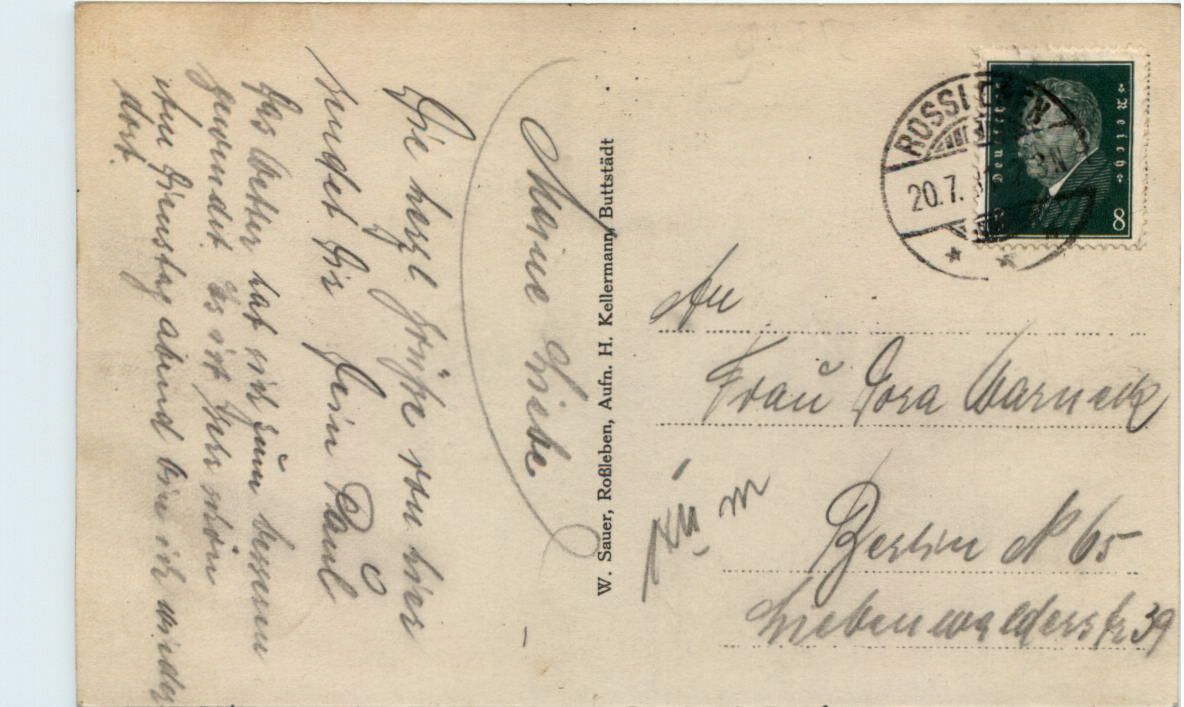 Meine Liebe.
Die herzl Grüße von hier
sendet Dir Dein Paul
Das Wetter hat sich zum besseren
gewendet. Es ist sehr schön
Am Dienstag abend bin ich wieder
dort.
W. Sauer, Roßleben, Aufn. H. Kellermann, Buttstädt
Deutsches Reich
8
ROSSLEBEN
20.7.
An
Frau Dora Warneck
Berlin N 65
Liebenwalderstr 39